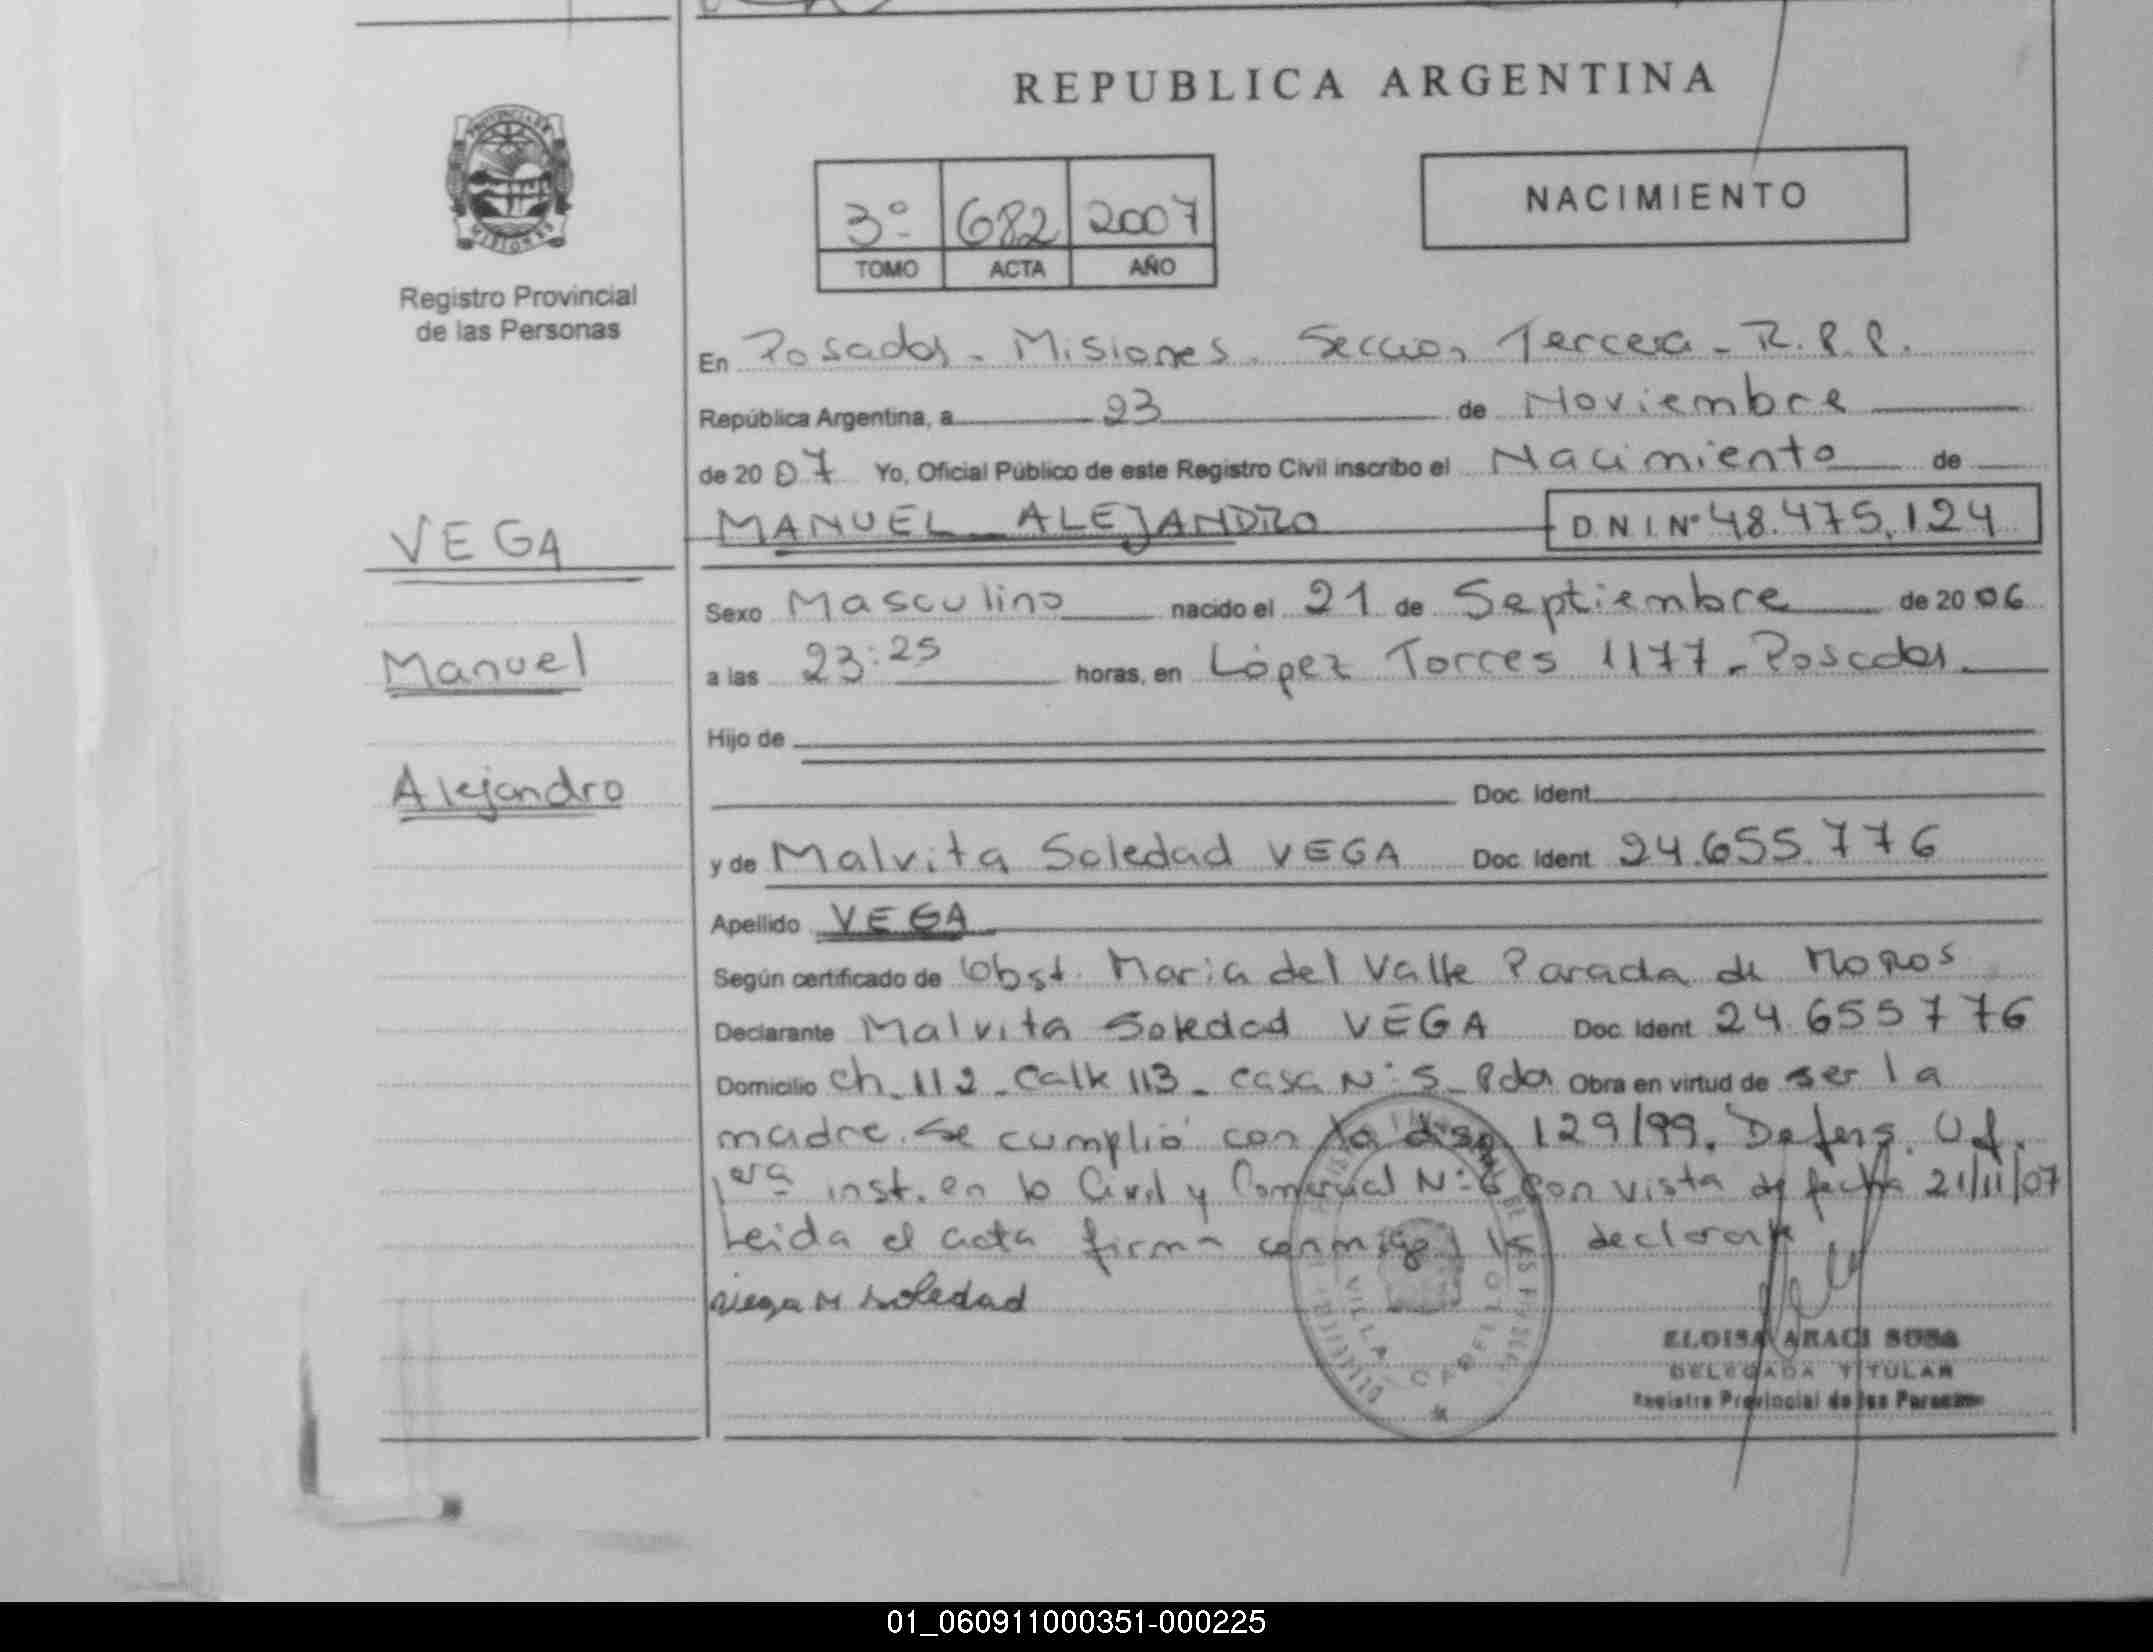 REPUBLICA ARGENTINA
PROVINCIA DE
MISIONES
Registro Provincial
de las Personas
3º 682 2007
TOMO ACTA AÑO
NACIMIENTO
En Posadas - Misiones. Seccion Tercera - R.P.P.
República Argentina, a 23 de Noviembre
de 20 07 Yo, Oficial Público de este Registro Civil inscribo el Nacimiento de
VEGA
MANUEL ALEJANDRO D N I Nº 48.475.124
Sexo Masculino nacido el 21 de Septiembre de 20 06
Manuel
a las 23:25 horas, en López Torres 1177 - Posadas
Hijo de
Alejandro
Doc. Ident.
y de Malvita Soledad VEGA Doc. Ident. 24.655.776
Apellido VEGA
Según certificado de Obst. Maria del Valle Parada de
Declarante Malvita Soledad VEGA Doc. Ident. 24.655776
Domicilio ch. 112 - Calle 113 - casa Nº 5 - Pdas Obra en virtud de ser la
madre. Se cumplió con la disp. 129/99. Defens. Of.
1era inst. en lo Civil y Comercial Nº 6 con vista de fecha 21/11/07
Leida el acta firma conmigo la declarante
Vega M Soledad
VILLA CABELLO
ELOISA ARACI SOSA
DELEGADA TITULAR
Registro Provincial de las Personas
01_060911000351-000225